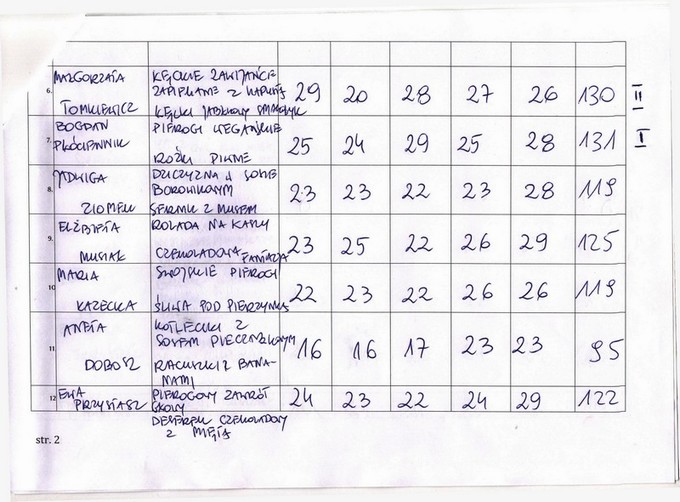 6. MAŁGORZATA TOMKIEWICZ
ZAPIEKANE Z KAPUSTĄ
29 20 28 27 26 130 II
7. BOGDAN
PIEROGI WEGAŃSKIE
ROŻKI PIWNE
25 24 29 25 28 131 I
8. JADWIGA ZIOMEK
DZICZYZNA W SOSIE
BOROWIKOWYM
SERNIK Z MUSEM
23 23 22 23 28 119
9. ELŻBIETA MUSIAŁ
ROLADA NA
CZEKOLADOWA FANTAZJA
23 25 22 26 29 125
10 MARIA KAZECKA
SWOJSKIE PIEROGI
ŚLIWA POD PIERZYNKĄ
22 23 22 26 26 119
11 ANETA DOBOSZ
KOTLECIKI Z
SOSEM PIECZARKOWYM
RACUSZKI Z BANA-
NAMI
16 16 17 23 23 95
12 EWA PRZYSTASZ
PIEROGOWY ZAWRÓT
GŁOWY
DESEREK CZEKOLADOWY
Z MIĘTĄ
24 23 22 24 29 122
str. 2